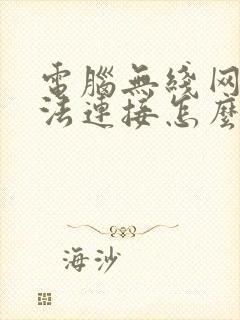 電腦無綫网
法連接怎麽
海沙